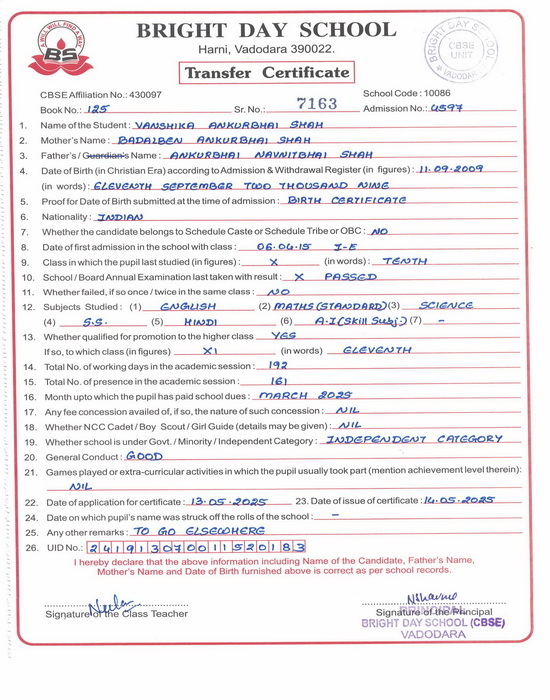 A WILL WILL FIND A WAY
BS
BRIGHT DAY SCHOOL
Harni, Vadodara 390022.
Transfer Certificate
BRIGHT DAY SCHOOL
CBSE
UNIT
VADODARA
CBSE Affiliation No.: 430097 School Code : 10086
Book No.: 125 Sr. No.: 7163 Admission No.: 4597
1. Name of the Student : VANSHIKA ANKURBHAI SHAH
2. Mother's Name : BADALBEN ANKURBHAI SHAH
3. Father's / Guardian's Name : ANKURBHAI NAVNITBHAI SHAH
4. Date of Birth (in Christian Era) according to Admission & Withdrawal Register (in figures) : 11.09.2009
(in words) : ELEVENTH SEPTEMBER TWO THOUSAND NINE
5. Proof for Date of Birth submitted at the time of admission : BIRTH CERTIFICATE
6. Nationality : INDIAN
7. Whether the candidate belongs to Schedule Caste or Schedule Tribe or OBC : NO
8. Date of first admission in the school with class : 06.04.15 I-E
9. Class in which the pupil last studied (in figures) : X (in words) : TENTH
10. School / Board Annual Examination last taken with result : X PASSED
11. Whether failed, if so once / twice in the same class : NO
12. Subjects Studied : (1) ENGLISH (2) MATHS(STANDARD) (3) SCIENCE
(4) S.S. (5) HINDI (6) A.I (Skill Subj.) (7) -
13. Whether qualified for promotion to the higher class YES
If so, to which class (in figures) XI (in words) ELEVENTH
14. Total No. of working days in the academic session : 192
15. Total No. of presence in the academic session : 161
16. Month upto which the pupil has paid school dues : MARCH 2025
17. Any fee concession availed of, if so, the nature of such concession : NIL
18. Whether NCC Cadet / Boy Scout / Girl Guide (details may be given) : NIL
19. Whether school is under Govt. / Minority / Independent Category : INDEPENDENT CATEGORY
20. General Conduct : GOOD
21. Games played or extra-curricular activities in which the pupil usually took part (mention achievement level therein) :
NIL
22. Date of application for certificate : 13.05.2025 23. Date of issue of certificate : 14.05.2025
24. Date on which pupil's name was struck off the rolls of the school : -
25. Any other remarks : TO GO ELSEWHERE
26. UID No.: 241913070011520183
I hereby declare that the above information including Name of the Candidate, Father's Name,
Mother's Name and Date of Birth furnished above is correct as per school records.
Signature of the Class Teacher Signature of the Principal
PRINCIPAL
BRIGHT DAY SCHOOL (CBSE)
VADODARA